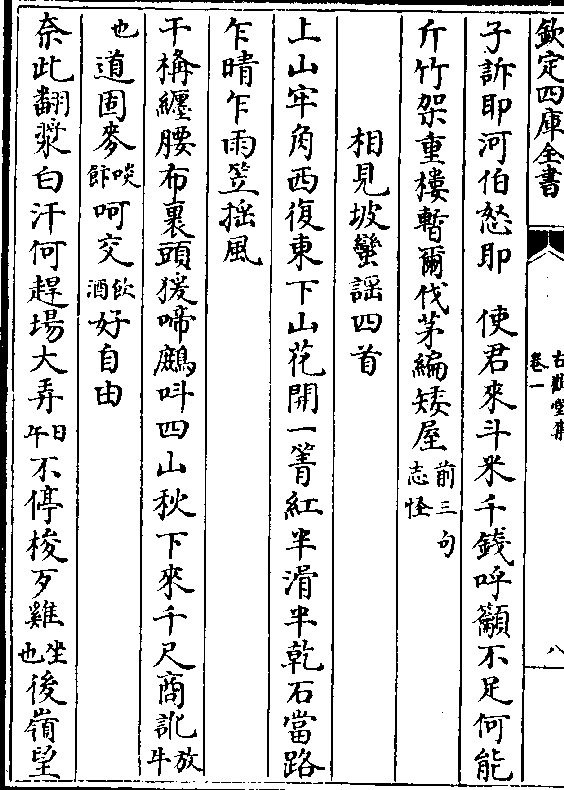 欽定四庫全書
古歡堂集
卷一
八
子訴耶河伯怒耶　使君來斗米千錢呼籲不足何能
斤竹架重樓暫爾伐茅編矮屋前三句志怪
相見坡蠻謡四首
上山牢角西復東下山花開一箐紅半滑半乾石當路
乍晴乍雨笠揺風
干構纒腰布裹頭猨啼鷓呌四山秋下來千尺商訛放牛
也道固麥啖飵呵交飲酒好自由
奈此翻漿白汗何趕場大弄日午不停梭歹雞坐也後嶺望